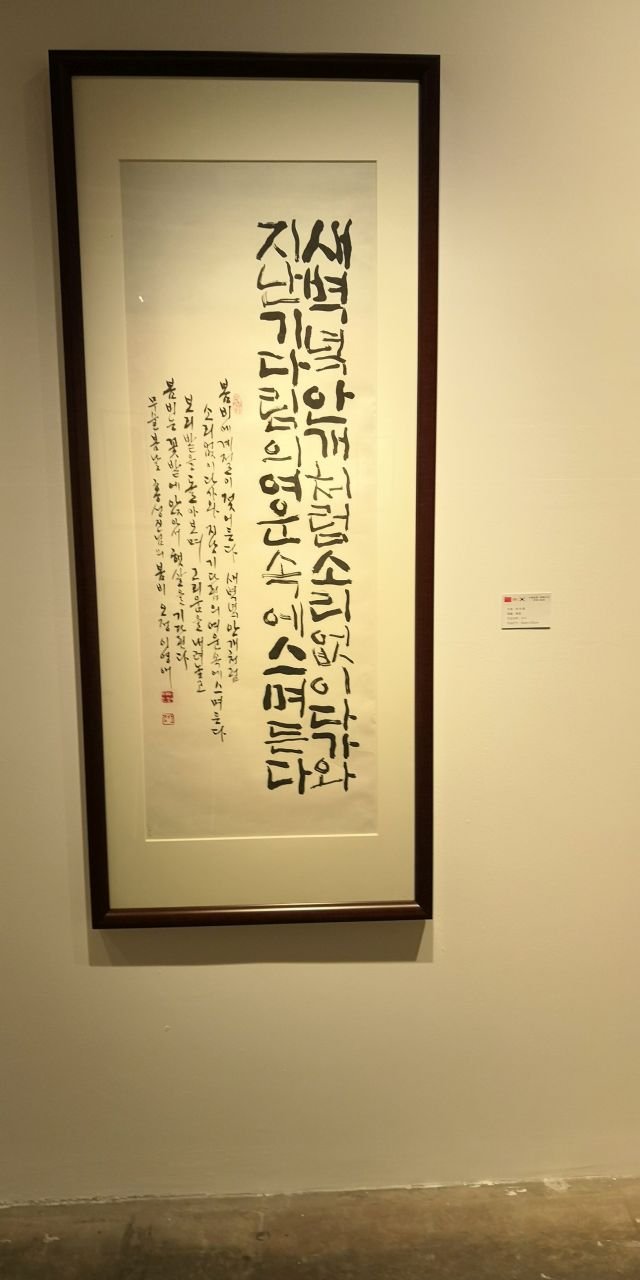 새벽녘안개처럼소리없이다가와
지난기다림의여운속에스며든다
봄비에 계절이 젖어든다 새벽녘 안개처럼
소리없이 다가와 지난 기다림의 여운속에 스며든다
보리밭을 돌아보며 그리움을 내려놓고
봄비는 꽃밭에 앉아서 햇살을 기다린다
무술 봄날 님의 봄비